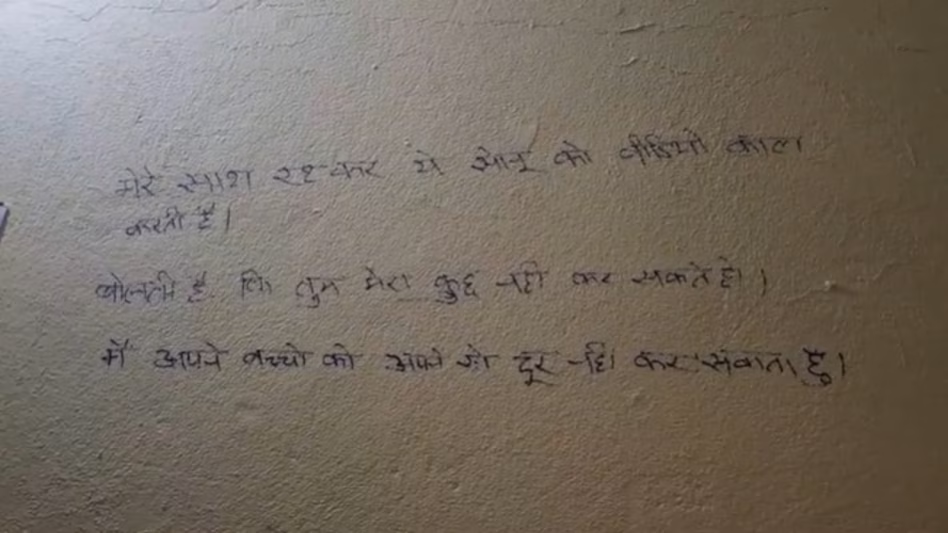 मेरे साथ रहकर ये सोनू को वीडियो काल
करती है।
बोलती है कि तुम मेरा कुछ नही कर सकते हो।
में अपने बच्चो को अपने से दूर नही कर सकता हु।